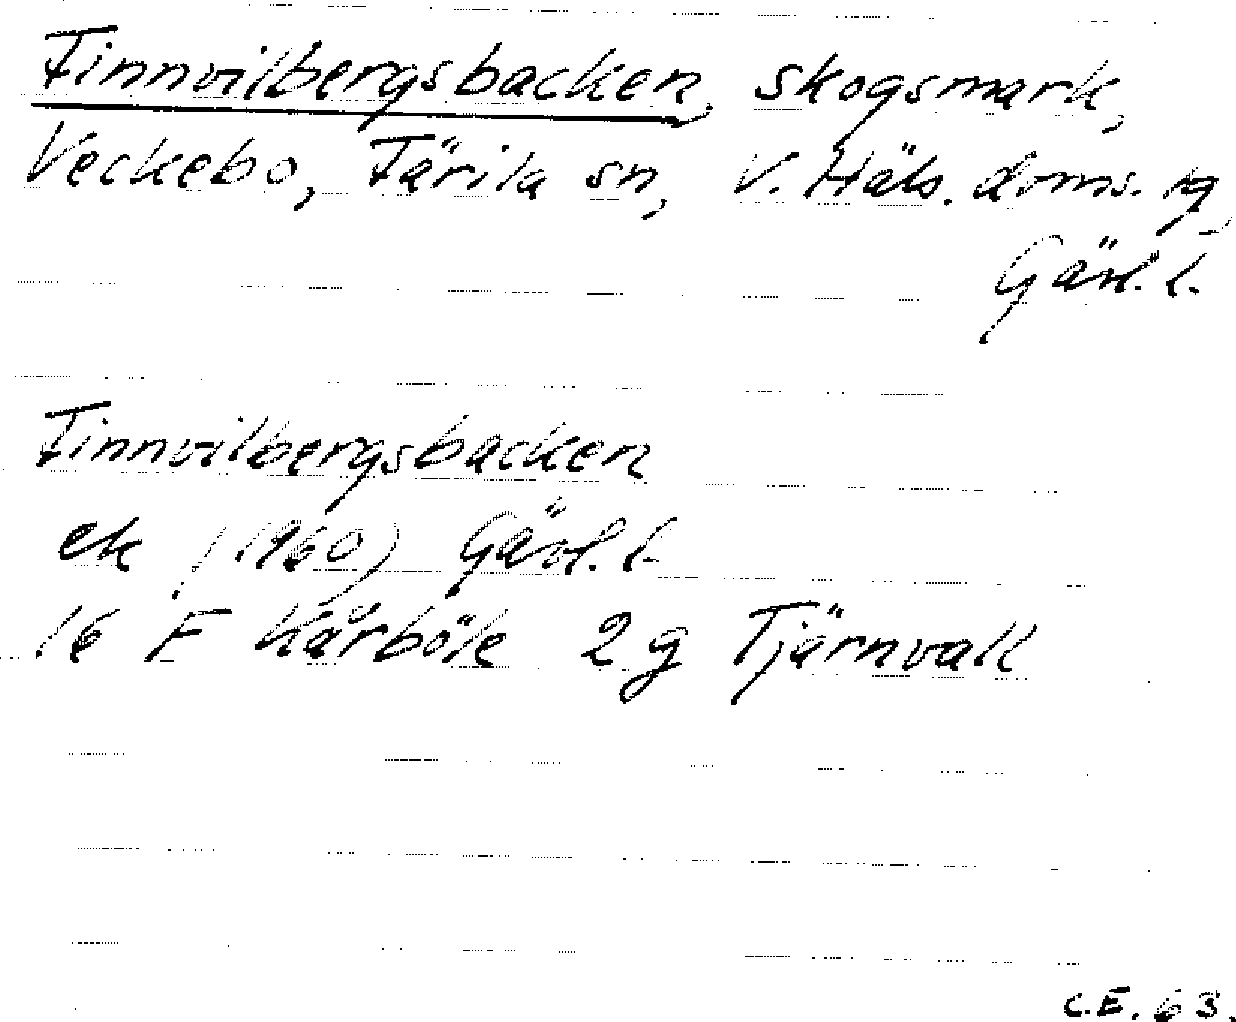 Finnvilbergsbacken, skogsmark,
Veckebo, Färila sn, V. Häls. doms. sg,
Gävl. l.
Finnvilbergsbacken
ek (1960) Gävl. l.
16 F Kårböle 2 g Tjärnvall
C.E. 63.